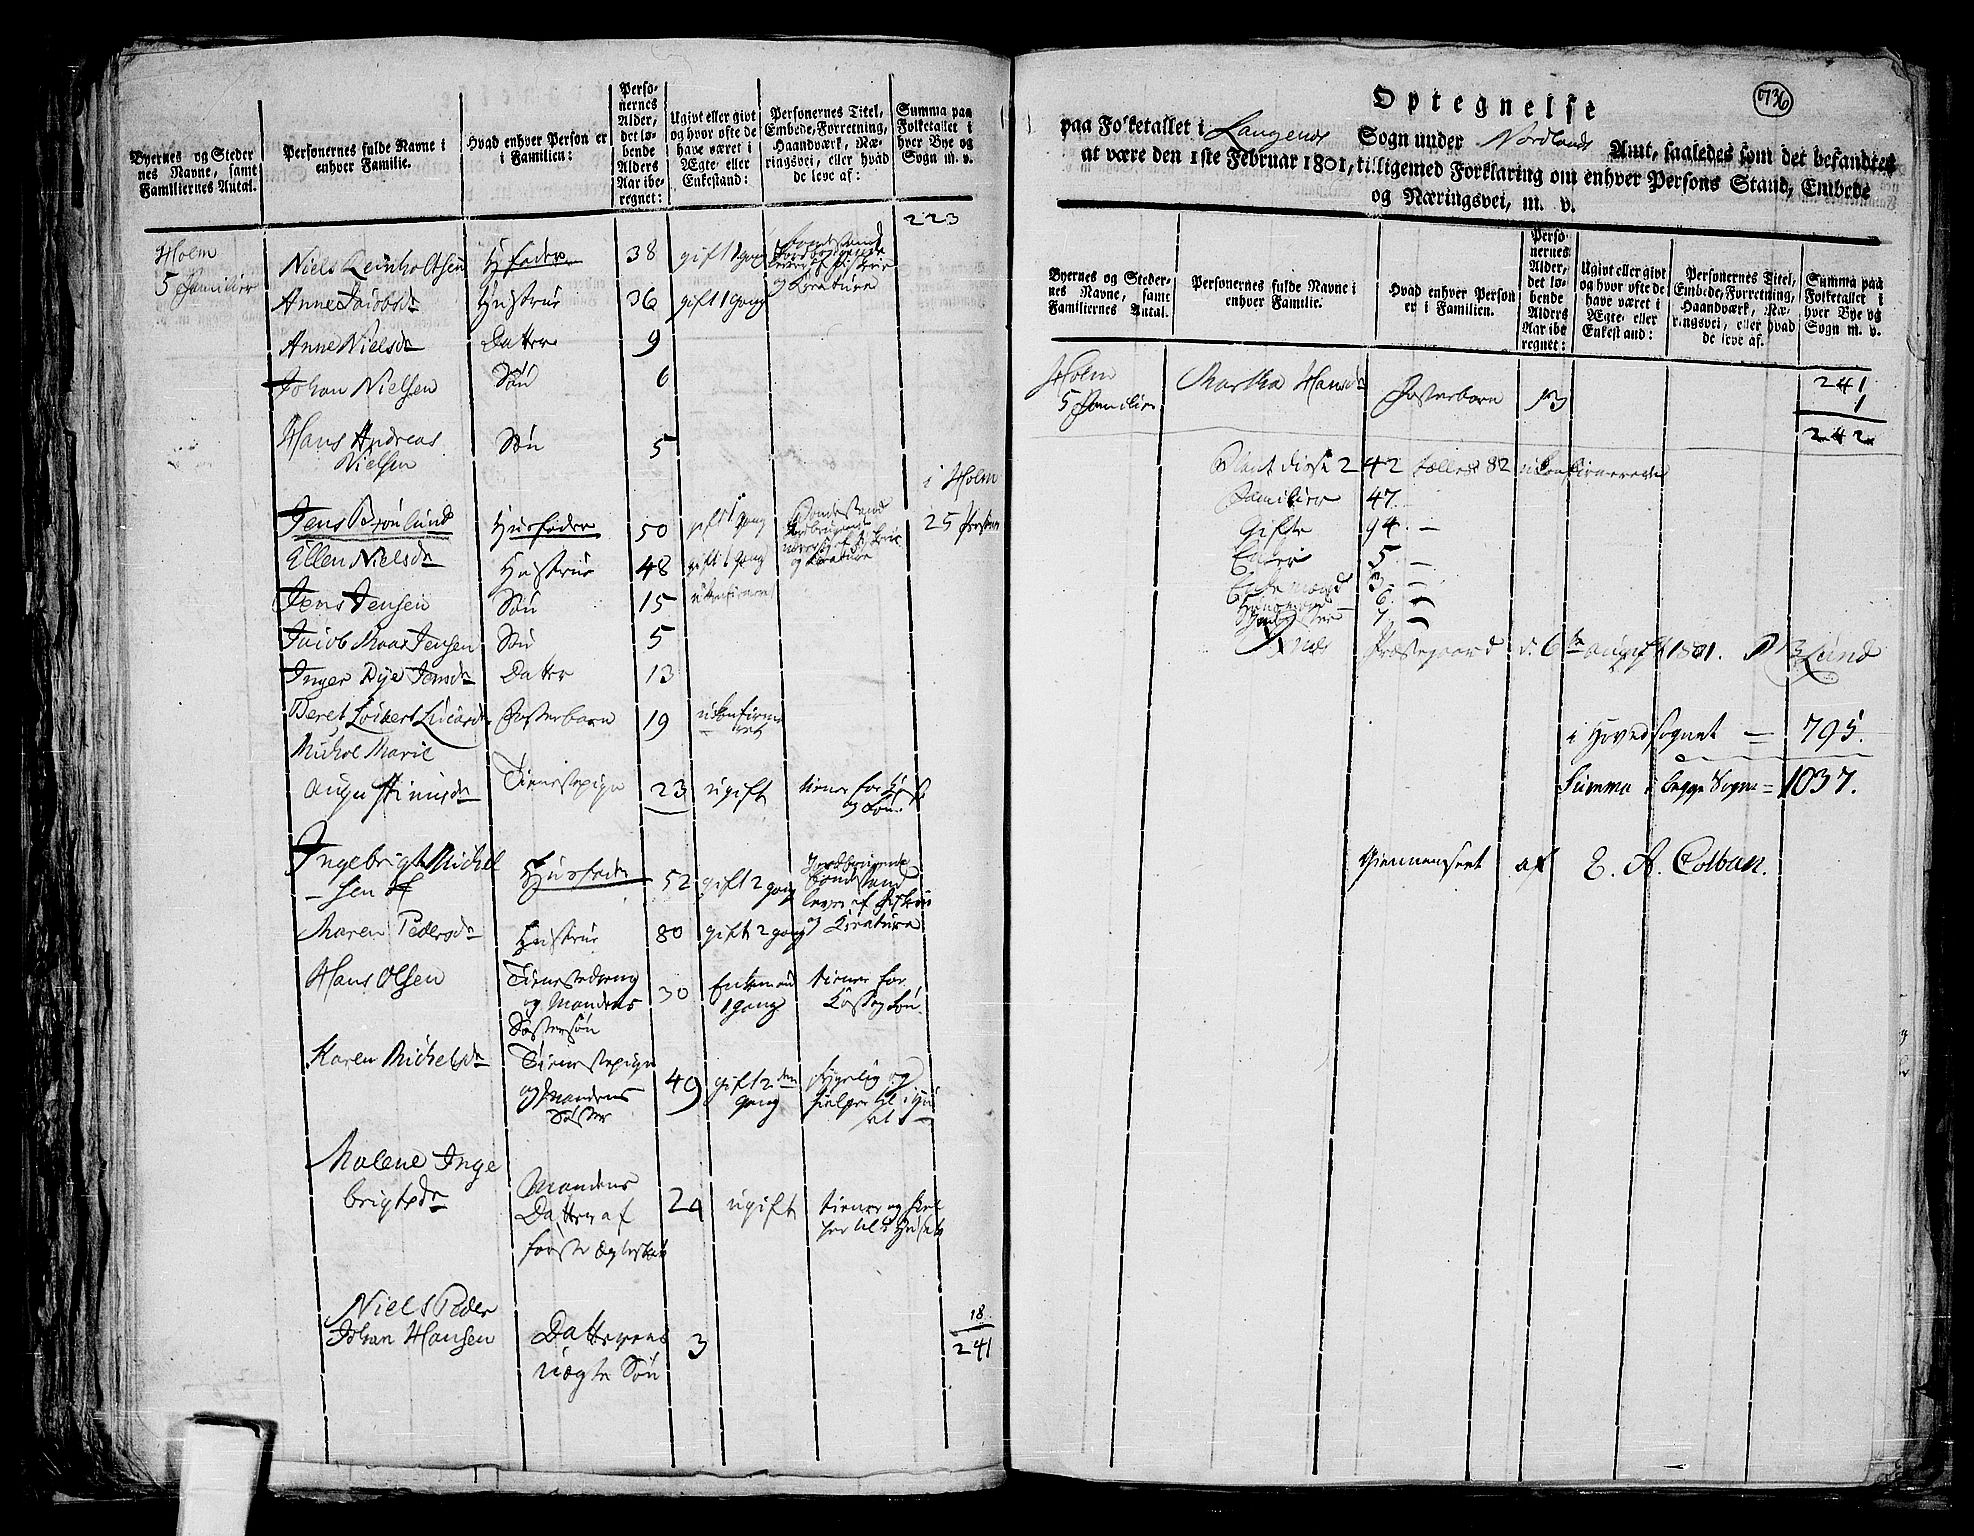 Byernes og Steder
nes Navne, samt
Familiernes Antal.
Personernes fulde Navne i
enhver Familie.
Hvad enhver Person er
i Familien:
Perso-
nernes
Alder,
det lø-
bende
Alders
Aar ibe-
regnet:
Ugivt eller givt
og hvor ofte de
have været i
Ægte- eller
Enkestand:
Personernes Titel,
Embede, Forretning,
Haandværk, Næ-
ringsvei, eller hvad
de leve af:
Summa paa
Folketallet i
hver Bye og
Sogn m. v.
223
Holm
5 Familier
Niels Reinholtsen Hfader 38 gift 1 gang
og Kreatura
Anne Jacobsdr Hustrue 36 gift 1 gang
Anne Nielsdr Datter 9
Johan Nielsen Søn 6
Hans Andreas
Nielsen Søn 5
i Holm
25 Personer
Jens Brønlund Husfader 50 gift 1 gang Bondestand
og Kreatura
Ellen Nielsdr Hustrue 48 gift 1 gang
Jens Jensen Søn 15 ukonfirmeret
Jacob Maas Jensen Søn 5
Inger Dye Jensdr Datter 13
Beret Fosterbarn 19 ukonfirme
ret
Michel Marie
Augustinusdr Tienestepige 23 ugift tiener for
og Løn
Ingebrigt Michel
-sen Husfader 52 gift 2 gang Jordbrugende
Bondestand
lever af Fiskerie
og Kreatura
Maren Pedersdr Hustrue 80 gift 2 gang
Hans Olsen Tienestedreng
og Mandens
Søstersøn 30 Enkemand
1 gang tiener for
Kost og Løn.
Karen Michelsdr Tienestepige
og Mandens
Søster 49 gift 2den
gang sygelig og
hielper til i Huu
set
Malene Inge
brigtsdr Mandens
Datter af
første Ægteskab 24 ugift tiener og hiel
per til i Huset
Niels Peder
Johan Hansen Datterens
uægte Søn 3
18.
241
736
Optegnelse
paa Folketallet i Langenes Sogn under Nordlands Amt, saaledes som det befandtes
at være den 1ste Februar 1801, tilligemed Forklaring om enhver Persons Stand, Embede
og Næringsvei, m. v.
Byernes og Steder-
nes Navne, samt
Familiernes Antal.
Personernes fulde Navne i
enhver Familie.
Hvad enhver Person
er i Familien.
Perso-
nernes
Alder,
det lø-
bende
Alders
Aar ibe-
regnet:
Ugivt eller givt
og hvor ofte de
have været i
Ægte- eller
Enkestand:
Personernes Titel,
Embede, Forretning,
Haandværk, Næ-
ringsvei, eller hvad
de leve af.
Summa paa
Folketallet i
hver Bye og
Sogn m. v.
Holm
5 Familier
Martha Hansdr Fosterbarn 13
241
1
242
Blant disse 242 tælles 82 ukonfirmerede
Familier 47. -
Gifte 94. -
Enker 5. -
Enkemænd 3. -
6. -
7. -
Præstegaard d: 6te august 1801. Lund
i Hovedsognet = 795.
Summa i begge Sogne = 1037.
Giennemseet af E. A. Colban.